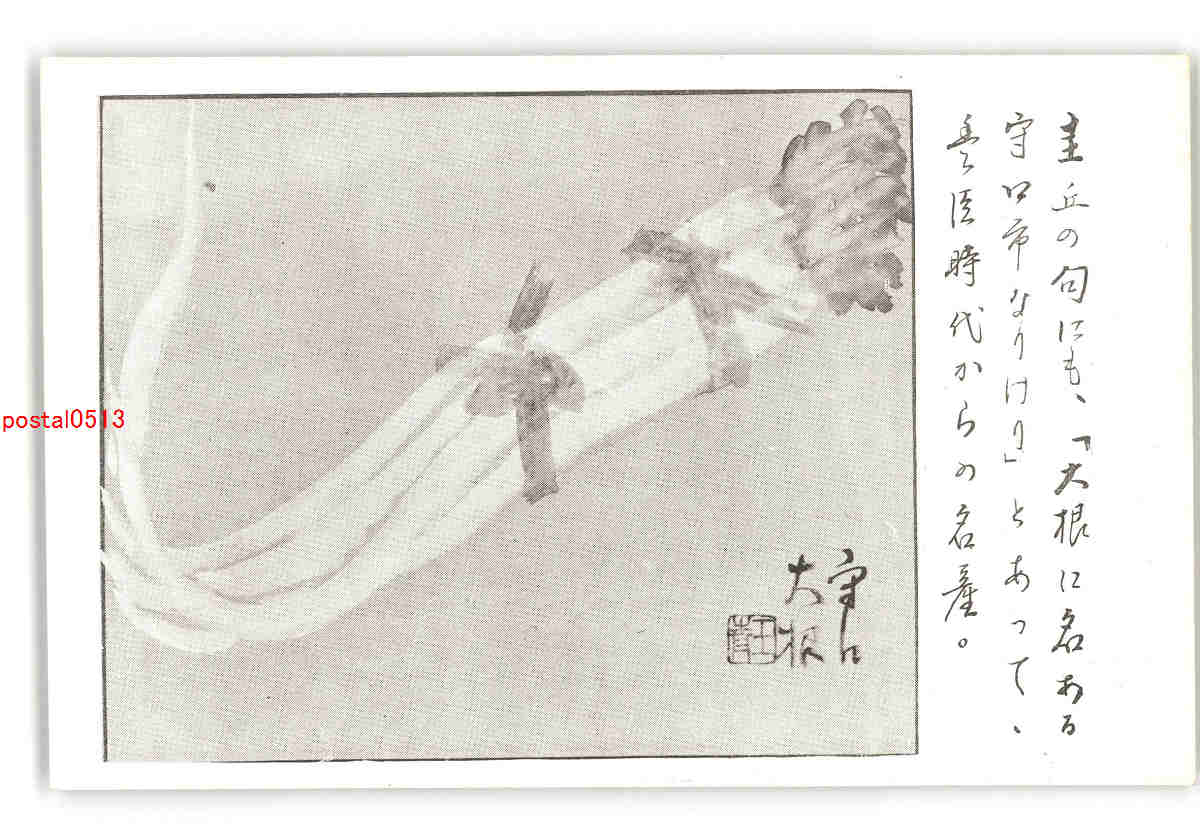 圭丘の句にも、「大根に名ある
守口市なりけり」とあって、
豊臣時代からの名産。
守口
大根
postal0513